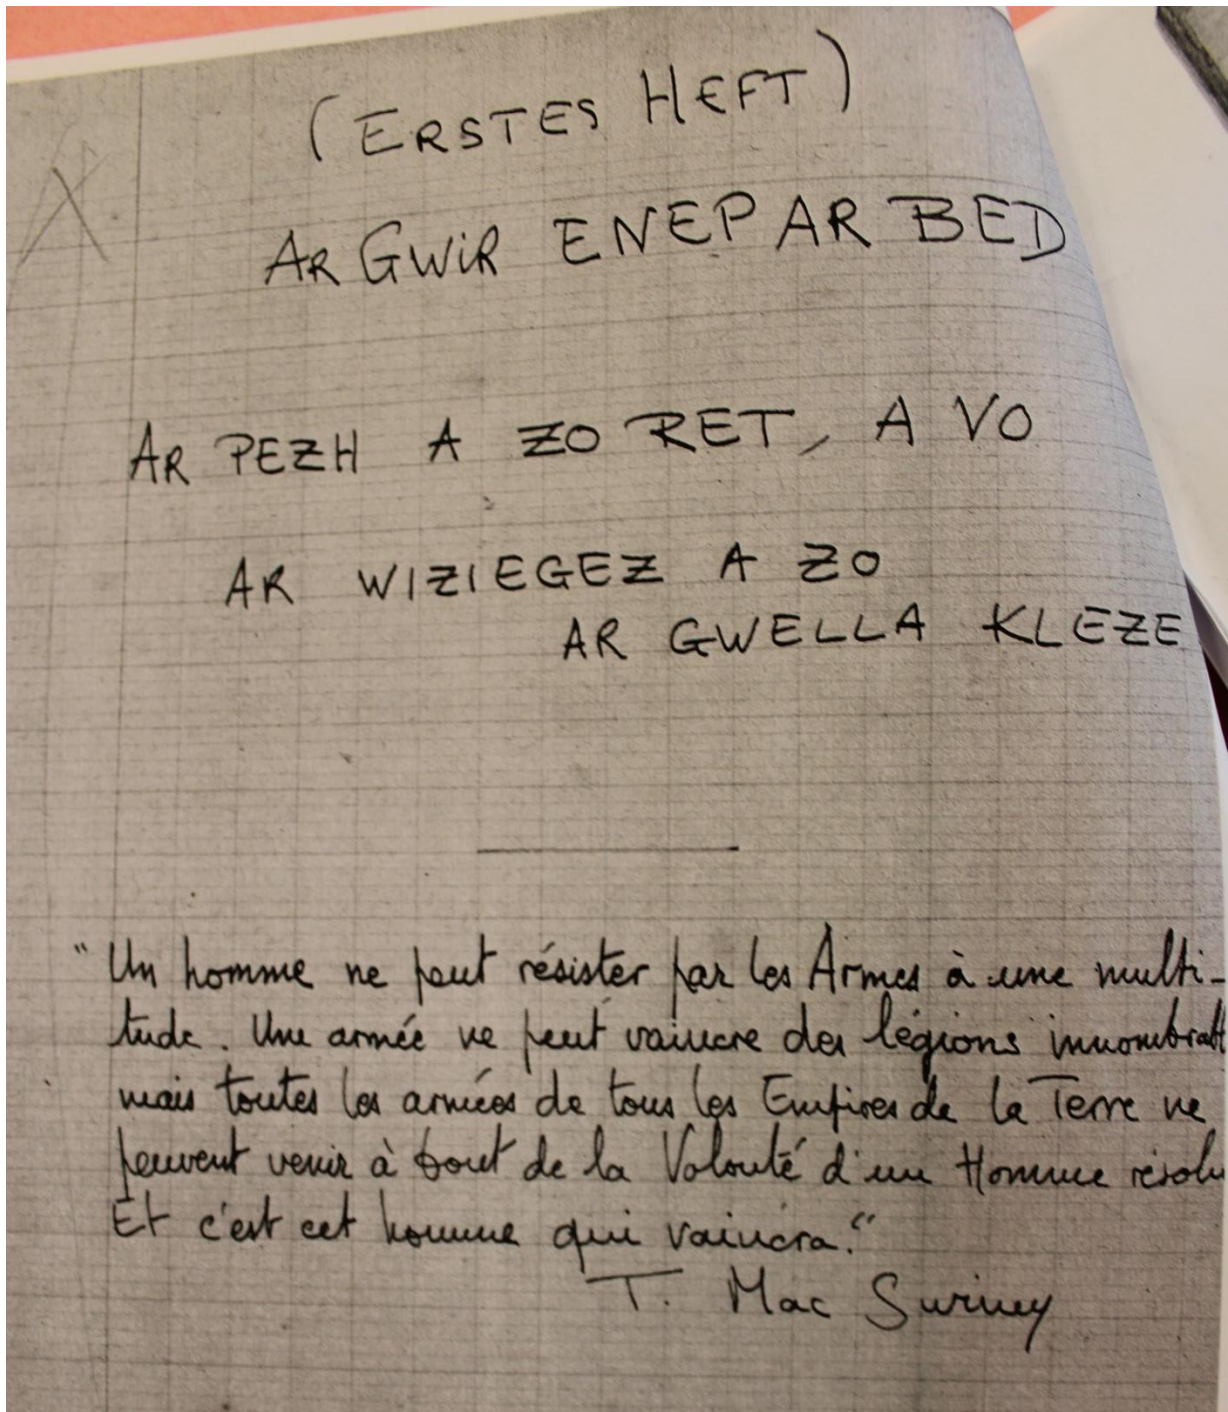 (ERSTES HEFT)
AR GWIR ENEP AR BED
AR PEZH A ZO RET, A VO
AR WIZIEGEZ A ZO
AR GWELLA KLEZE
"Un homme ne peut résister par les Armes à une multi-
tude. Une armée ne peut vaincre des légions
mais toutes les armées de tous les Empires de la Terre ne
peuvent venir à bout de la Volonté d'un Homme résolu
Et c'est cet homme qui vaincra."
T. Mac Swiney